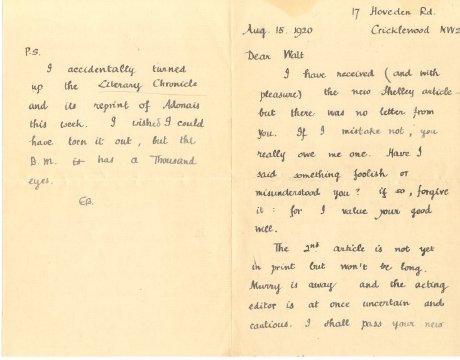 17 Hoveden Rd.
Aug. 15. 1920 Cricklewood NW2
Dear Walt
I have received (and with
pleasure) the new Shelley article -
but there was no letter from
you. If I mistake not, you
really owe me one. Have I
said something foolish or
misunderstood you? if so, forgive
it: for I value your good
will.
The 2nd article is not yet
in print but won't be long.
Murry is away and the acting
editor is at once uncertain and
cautious. I shall pass your new
P.S.
I accidentally turned
up the Literary Chronicle
and its reprint of Adonais
this week. I wished I could
have torn it out, but the
B.M. has a Thousand
eyes.
EB.